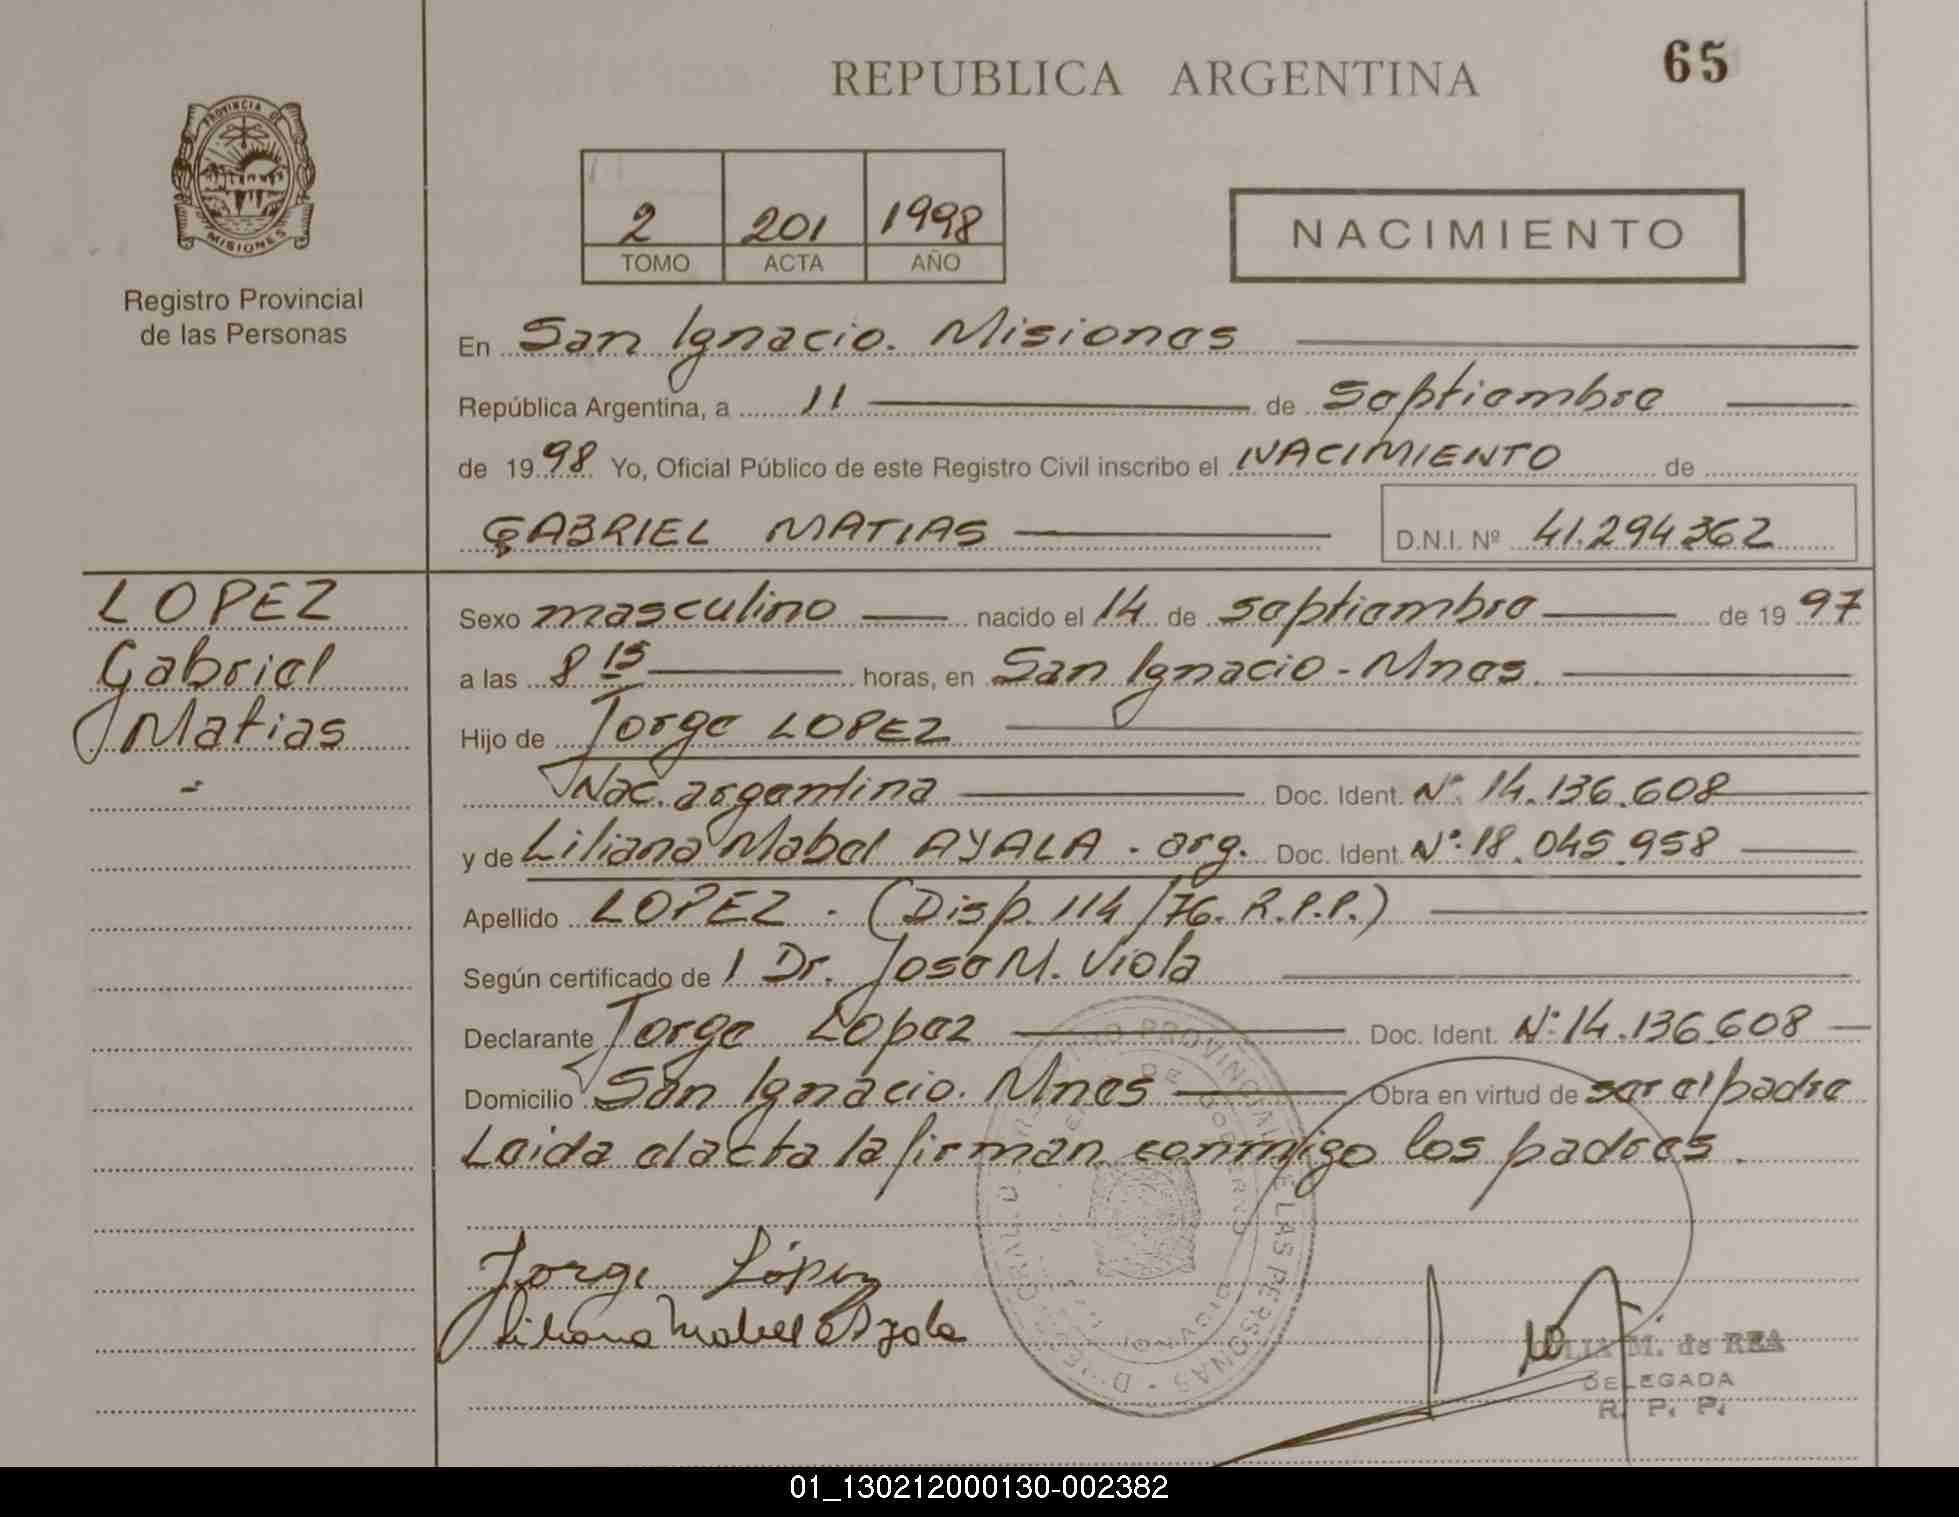 REPUBLICA ARGENTINA
65
PROVINCIA DE
MISIONES
Registro Provincial
de las Personas
2 201 1998
TOMO ACTA AÑO
NACIMIENTO
En San Ignacio. Misiones
República Argentina, a 11 de Septiembre
de 1998 Yo, Oficial Público de este Registro Civil inscribo el NACIMIENTO de
GABRIEL MATIAS D.N.I. Nº 41.294362
LOPEZ
Gabriel
Matias
Sexo masculino nacido el 14 de septiembre de 1997
a las 8 15 horas, en San Ignacio - Mnes.
Hijo de Jorge LOPEZ
Nac. argentina Doc. Ident. Nº 14.136.608
y de Liliana Mabel AYALA - arg. Doc. Ident. Nº 18.045.958
Apellido LOPEZ - (Disp. 114/76. R.P.P.)
Según certificado de 1 Dr. Jose M. Viola
Declarante Jorge Lopez Doc. Ident. Nº 14.136.608
Domicilio San Ignacio. Mnes Obra en virtud de ser el padre
Leida el acta la firman conmigo los padres.
Jorge López
Liliana Mabel Ayala
M. de REA
DELEGADA
R. P. P.
01_130212000130-002382